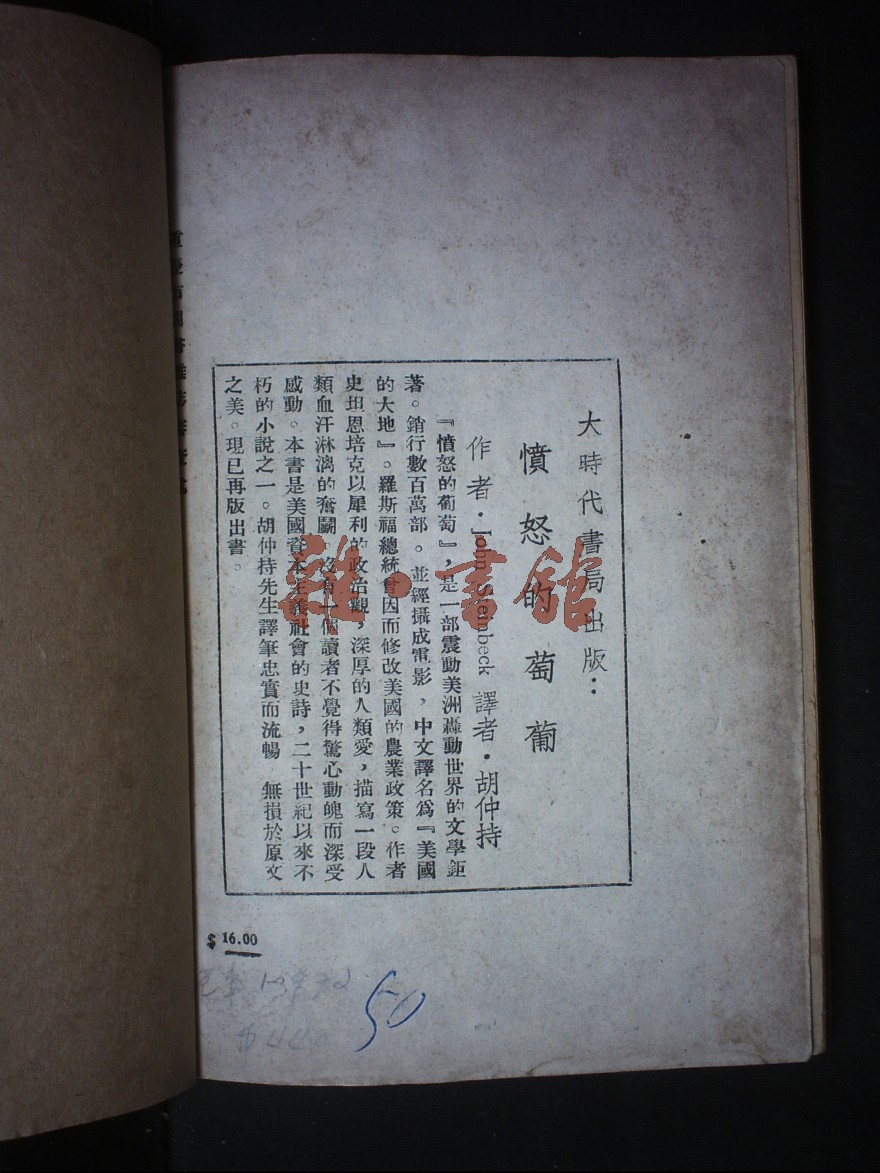 大時代書局出版：
憤怒的萄葡
作者·John Steinbeck 譯者·胡仲持
『憤怒的葡萄』，是一部震動美洲轟動世界的文學鉅
著。銷行數百萬部。並經攝成電影，中文譯名爲『美國
的大地』。羅斯福總統會因而修改美國的農業政策。作者
史坦恩培克以犀利的政治觀，深厚的人類愛，描寫一段人
類血汗淋漓的奮鬭。沒有一個讀者不覺得驚心動魄而深受
感動。本書是美國資本主義社會的史詩，二十世紀以來不
朽的小說之一。胡仲持先生譯筆忠實而流暢 無損於原文
之美。現已再版出書。
$ 16.00
50
雜·書館